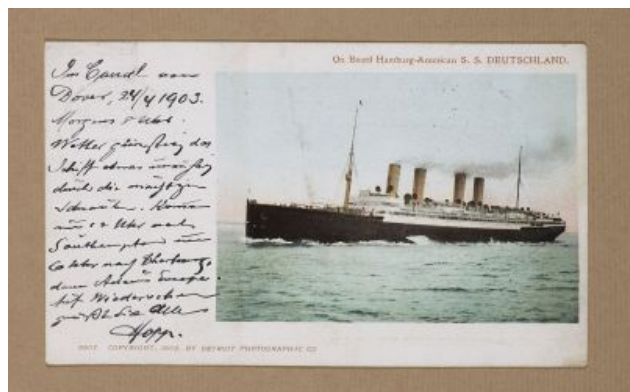 On Board Hamburg-American S. S. DEUTSCHLAND.
Im Canal von
Dover, 24/4 1903.
Morgens 8 Uhr.
Wetter günstig das
Schiff etwas unruhig
durch die mächtigen
Schrauben. Komme
um 10 Uhr nach
Southampton um
Uhr nach Cherbourg,
dann Adieu Europa
Auf Wiedersehen
grüßt Sie Alle
Hopp.
COPYRIGHT, 1902, BY DETROIT PHOTOGRAPHIC CO